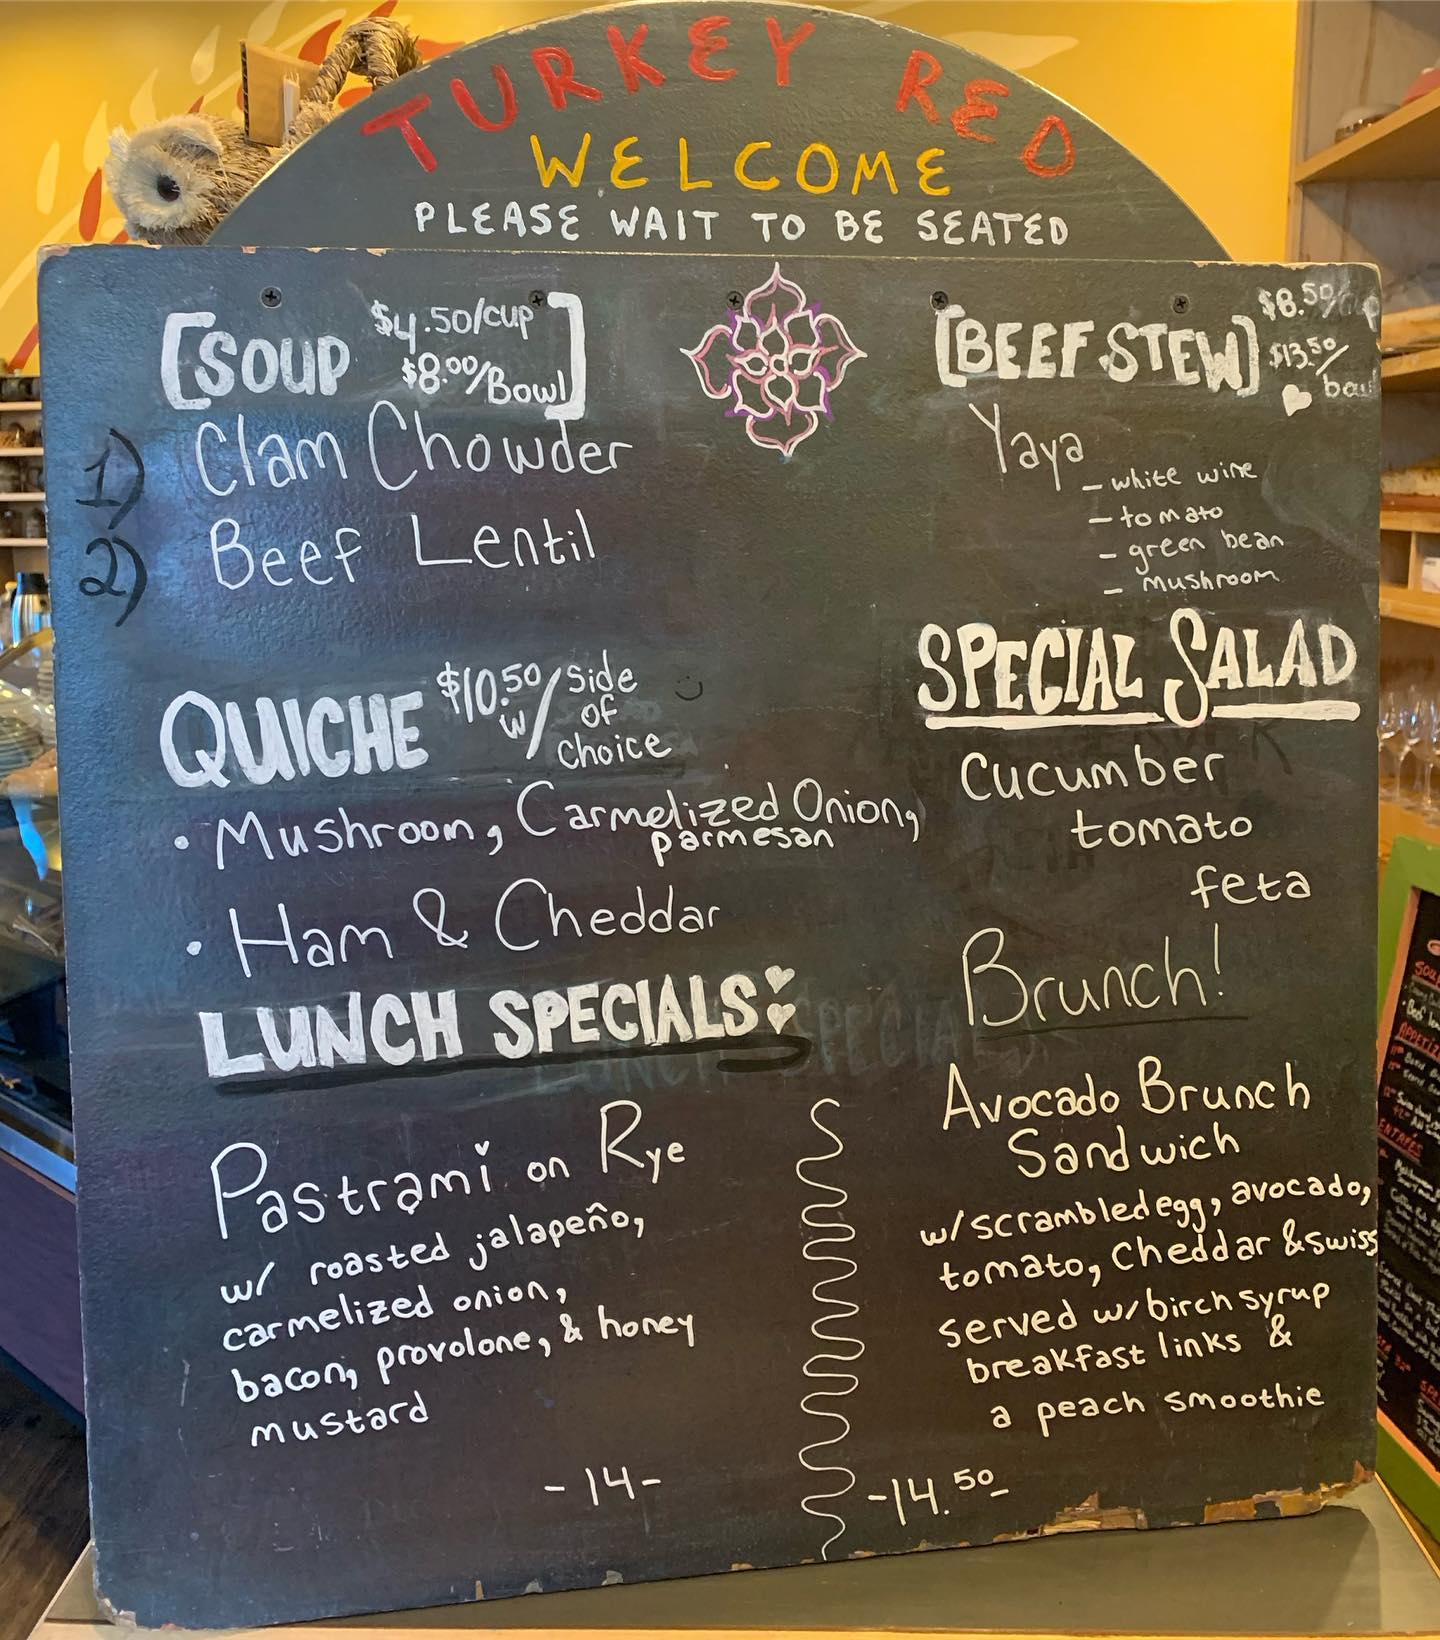 TURKEY RED
WELCOME
PLEASE WAIT TO BE SEATED
[SOUP $4.50/cup
$8.00/Bowl]
1) Clam Chowder
2) Beef Lentil
QUICHE $10.50 w/ side
of
choice
• Mushroom, Carmelized Onion,
parmesan
• Ham & Cheddar
LUNCH SPECIALS
Pastrami on Rye
w/ roasted jalapeño,
carmelized onion,
bacon, provolone, & honey
mustard
-14-
[BEEF STEW] $8.50/cup
$13.50/
bowl
Yaya
- white wine
- tomato
- green bean
- mushroom
SPECIAL SALAD
Cucumber
tomato
feta
Brunch!
Avocado Brunch
Sandwich
w/scrambled egg, avocado,
tomato, cheddar & swiss
served w/ birch syrup
breakfast links &
a peach smoothie
-14.50-